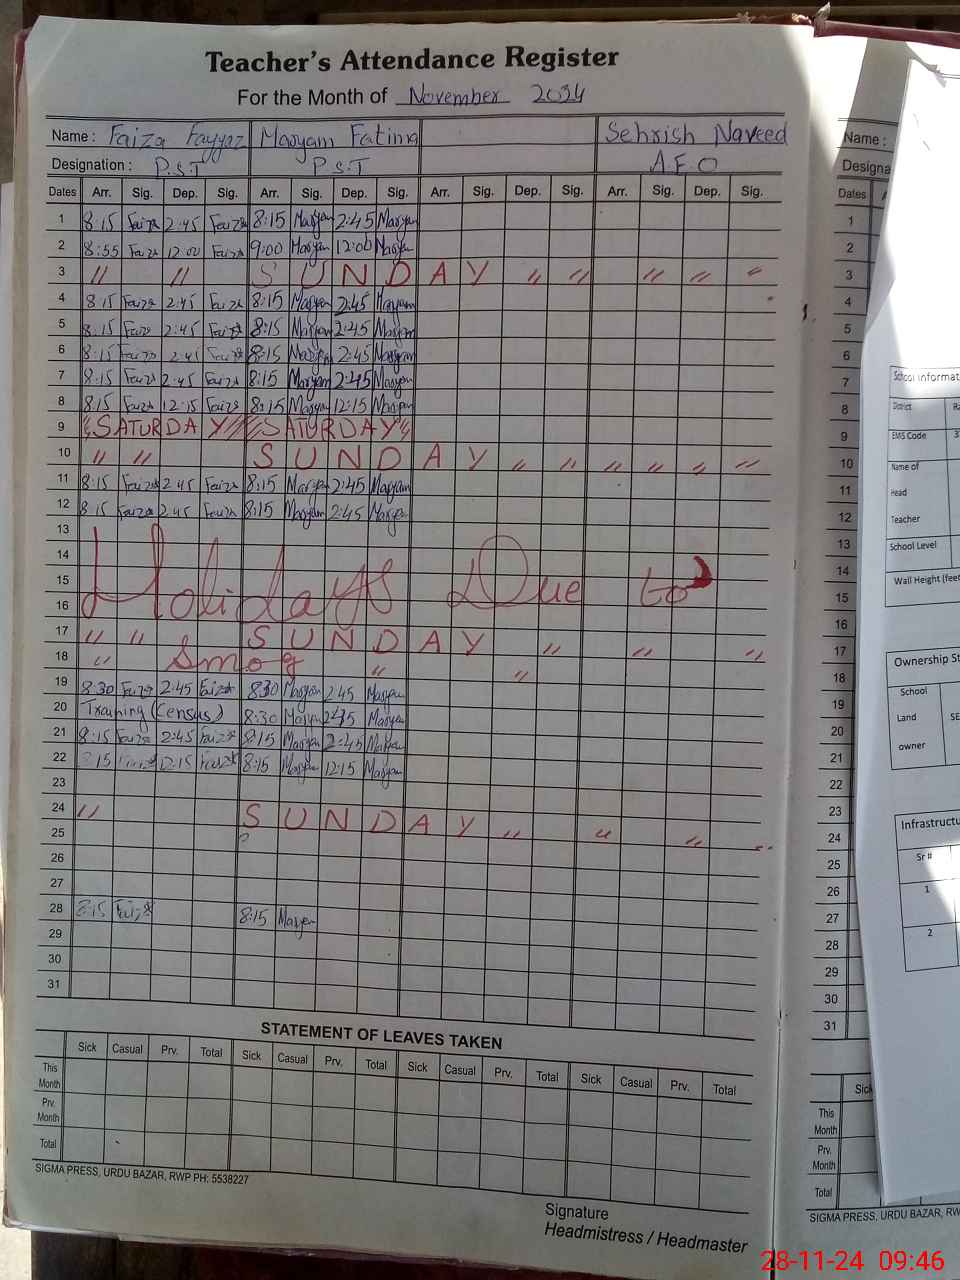 Teacher's Attendance Register
For the Month of November 2024
Name : Faiza Fayyaz Maryam Fatima Sehrish Naveed
Designation : P.S.T P.S.T A.E.O
Dates Arr. Sig. Dep. Sig. Arr. Sig. Dep. Sig. Arr. Sig. Dep. Sig. Arr. Sig. Dep. Sig.
1 8:15 Faiza 2:45 Faiza 8:15 Maryam 2:45 Maryam
2 8:55 Faiza 12:00 Faiza 9:00 Maryam 12:00 Maryam
3 " " SUNDAY " " " " "
4 8:15 Faiza 2:45 Faiza 8:15 Maryam 2:45 Maryam
5 8:15 Faiza 2:45 Faiza 8:15 Maryam 2:45 Maryam
6 8:15 Faiza 2:45 Faiza 8:15 Maryam 2:45 Maryam
7 8:15 Faiza 2:45 Faiza 8:15 Maryam 2:45 Maryam
8 8:15 Faiza 12:15 Faiza 8:15 Maryam 12:15 Maryam
9 "SATURDAY" "SATURDAY"
10 " " SUNDAY " " " " " "
11 8:15 Faiza 2:45 Faiza 8:15 Maryam 2:45 Maryam
12 8:15 Faiza 2:45 Faiza 8:15 Maryam 2:45 Maryam
13
14
15 Holidays Due to
16
17 " " SUNDAY " " "
18 " Smog " "
19 8:30 Faiza 2:45 Faiza 830 Maryam 2:45 Maryam
20 Training (Census) 8:30 Maryam 2:45 Maryam
21 8:15 Faiza 2:45 Faiza 8:15 Maryam 2:45 Maryam
22 8:15 Faiza 12:15 Faiza 8:15 Maryam 12:15 Maryam
23
24 " SUNDAY " " " "
25
26
27
28 8:15 Faiza 8:15 Maryam
29
30
31
STATEMENT OF LEAVES TAKEN
Sick Casual Prv. Total Sick Casual Prv. Total Sick Casual Prv. Total Sick Casual Prv. Total
This Month
Prv. Month
Total
SIGMA PRESS, URDU BAZAR, RWP PH: 5538227
Signature
Headmistress / Headmaster
Name :
Dates
1
2
3
4
5
6
7
8
9
10
11
12
13
14
15
16
17
18
19
20
21
22
23
24
25
26
27
28
29
30
31
School Informat
District
EMIS Code
Name of
Head
Teacher
School Level
Wall Height (fee
Ownership St
School
Land
owner
SE
Infrastructu
Sr #
1
2
Sick
This Month
Prv. Month
Total
SIGMA PRESS, URDU BAZAR, RW
28-11-24 09:46